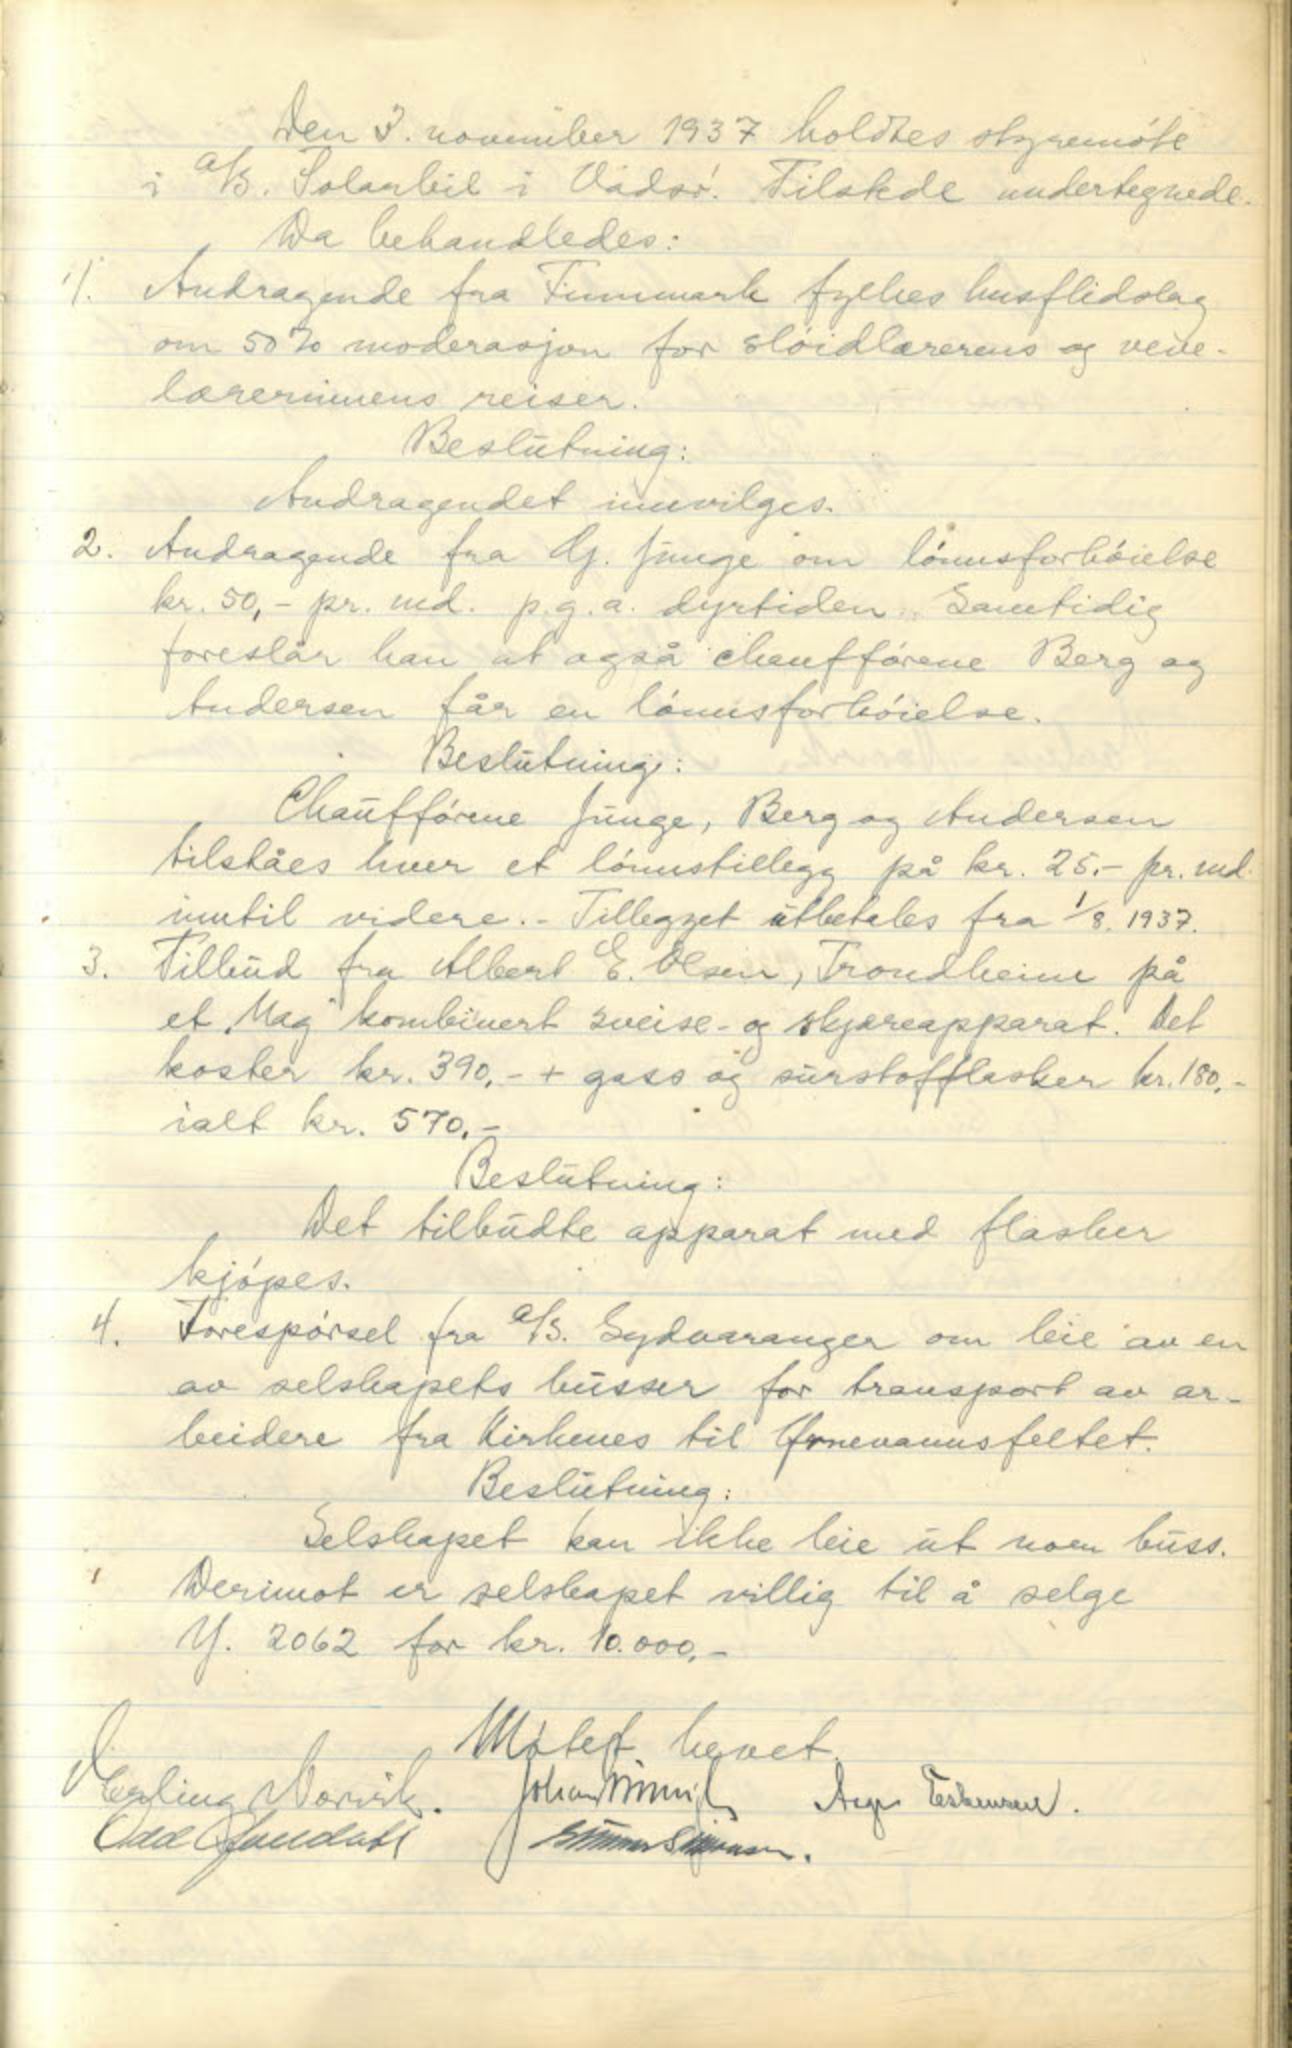 Den 3. november 1937 holdtes styremöte
i A/S. Polarbil i Vadsö. Tilstede undertegnede.
Da behandledes:
1. Andragende fra Finnmark fylkes husflidslag
om 50% moderasjon for slöidlærerens og veve-
lærerinnens reiser.
Beslutning:
Andragendet innvilges.
2. Andragende fra Hj. Junge om lönnsforhöielse
kr. 50,- pr. md. p.g.a. dyrtiden. Samtidig
foreslår han at også chaufförene Berg og
Andersen får en lönnsforhöielse.
Beslutning:
Chaufförene Junge, Berg og Andersen
tilståes hver et lönnstillegg på kr. 25.- pr. md.
inntil videre. - Tillegget utbetales fra 1/8. 1937.
3. Tilbud fra Albert E. Olsen, Trondheim på
et "Mag" kombinert sveise- og skjæreapparat. Det
koster kr. 390,- + gass og surstofflasker kr. 180,-
ialt kr. 570,-
Beslutning:
Det tilbudte apparat med flasker
kjöpes.
4. Forespörsel fra A/S. Sydvaranger om leie av en
av selskapets busser for transport av ar-
beidere fra Kirkenes til Ørnevannsfeltet.
Beslutning:
Selskapet kan ikke leie ut noen buss.
Derimot er selskapet villig til å selge
Y. 2062 for kr. 10.000,-
Mötet hevet.
Erling Norvik. Johan Aage
Odd